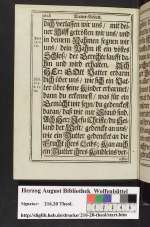 dich verlassen wir uns/ mit dei-
ner Hülff getrösten wir uns/ und
in deinem Nahmen fügen wir
uns/ dein Nahm ist ein vestes
Schloß/ der Gerechte laufft da-
hin und wird erhalten. Ach
HErr GOtt Vatter erbarm
dich über uns/ wie sich ein Vat-
ter über seine Kinder erbarmet/
dann du erkennest/ was für ein
Gemächt wir seyn/du gedenckest
daran/ daß wir nur Staub sind.
Ach HErr JEsu Christe du Hei-
land der Welt/ gedenck an uns/
wie ein Mutter gedenckt an die
Frucht ihres Leibs: Kan auch
ein Mutter ihres Kindleins ver-
Herzog August Bibliothek Wolfenbüttel
Signatur: 216.20 Theol.
http://diglib.hab.de/drucke/216-20-theol/start.htm